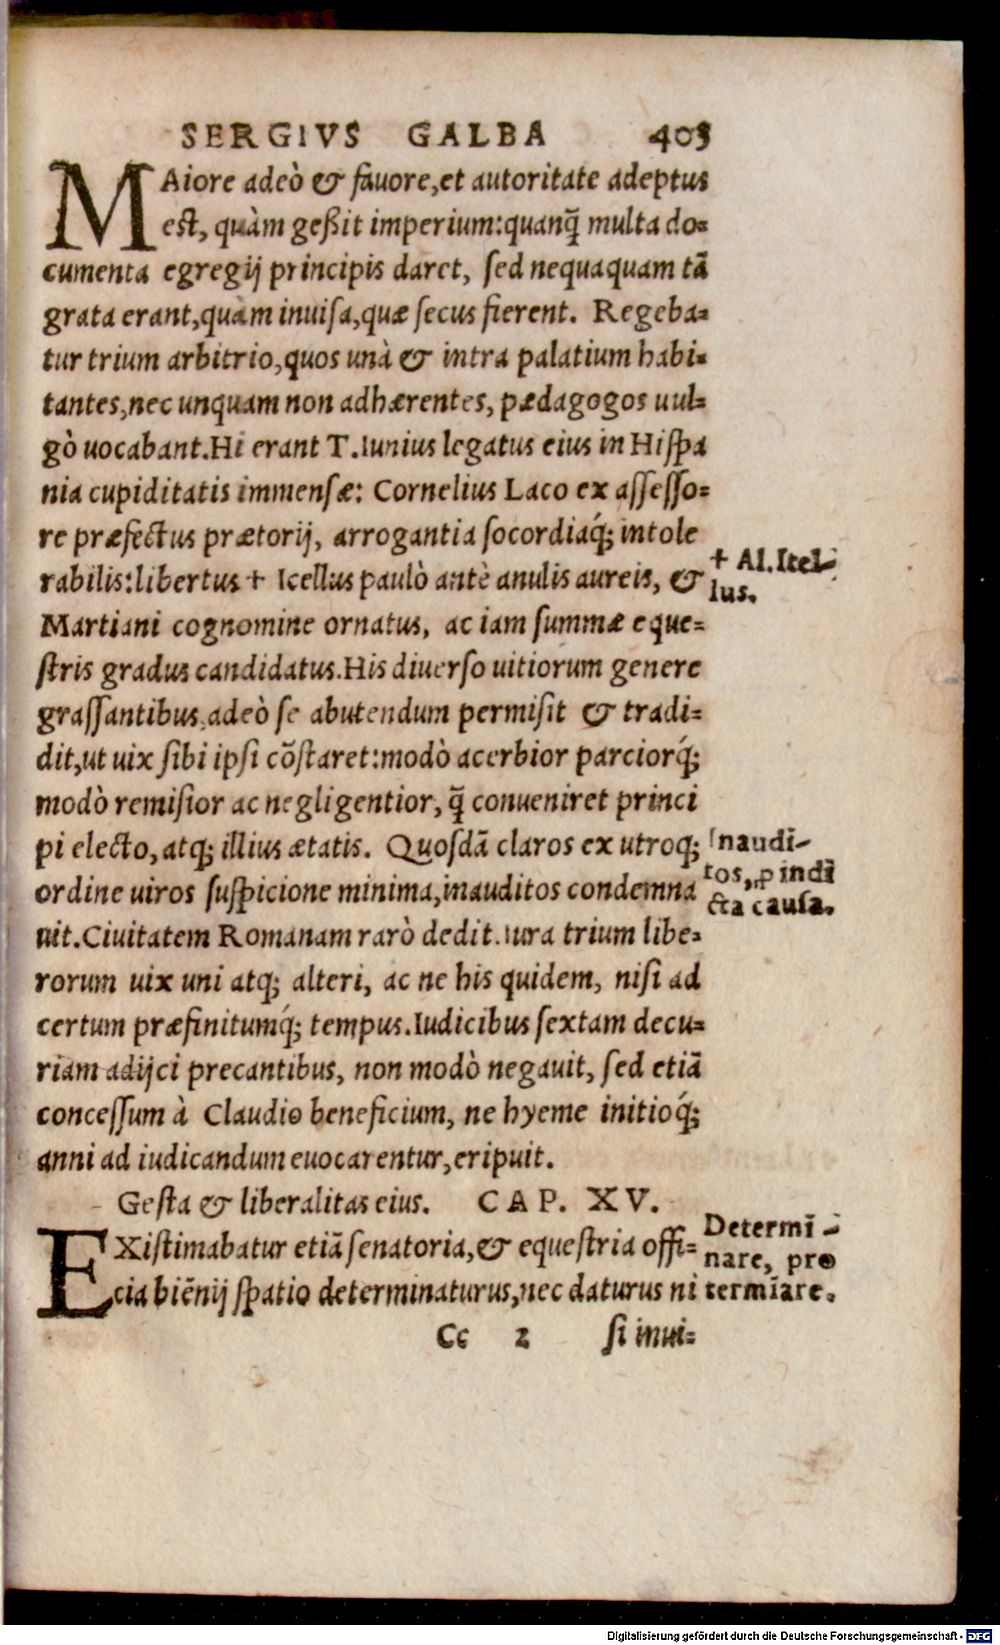 SERGIVS GALBA 405
MAiore adeò & fauore,et autoritate adeptus
est, quàm geßit imperium:quanq̃ multa do=
cumenta egregij principis daret, sed nequaquam tã
grata erant,quàm inuisa,quæ secus fierent. Regeba=
tur trium arbitrio,quos unà & intra palatium habi=
tantes,nec unquam non adhærentes, pædagogos uul=
gò uocabant.Hi erant T.Iunius legatus eius in Hispa
nia cupiditatis immensæ: Cornelius Laco ex assesso=
re præfectus prætorij, arrogantia socordiaq́; intole
rabilis:libertus + Icellus paulò antè anulis aureis, &
Martiani cognomine ornatus, ac iam summæ eque=
stris gradus candidatus.His diuerso uitiorum genere
grassantibus,adeò se abutendum permisit & tradi=
dit,ut uix sibi ipsi cõstaret:modò acerbior parciorq́;
modò remisior ac negligentior, q̃ conueniret princi
pi electo, atq; illius ætatis. Quosdã claros ex utroq;
ordine uiros suspicione minima,inauditos condemna
uit.Ciuitatem Romanam rarò dedit.Iura trium libe=
rorum uix uni atq; alteri, ac ne his quidem, nisi ad
certum præfinitumq́; tempus.Iudicibus sextam decu=
riam adijci precantibus, non modò negauit, sed etiã
concessum à Claudio beneficium, ne hyeme initioq́;
anni ad iudicandum euocarentur,eripuit.
Gesta & liberalitas eius. CAP. XV.
EXistimabatur etiã senatoria,& equestria offi=
cia biẽnij spatio determinaturus,nec daturus ni
Cc 2 si inui=
+ Al.Itel-
lus.
Inaudĩ-
tos, ꝓ indĩ
cta causa.
Determĩ-
nare, pro
termĩare.
Digitalisierung gefördert durch die Deutsche Forschungsgemeinschaft - DFG